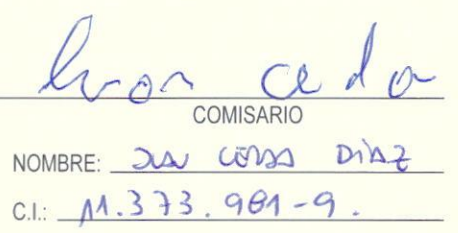 COMISARIO
NOMBRE: JUAN DIAZ
C.I.: 11.373.981-9.